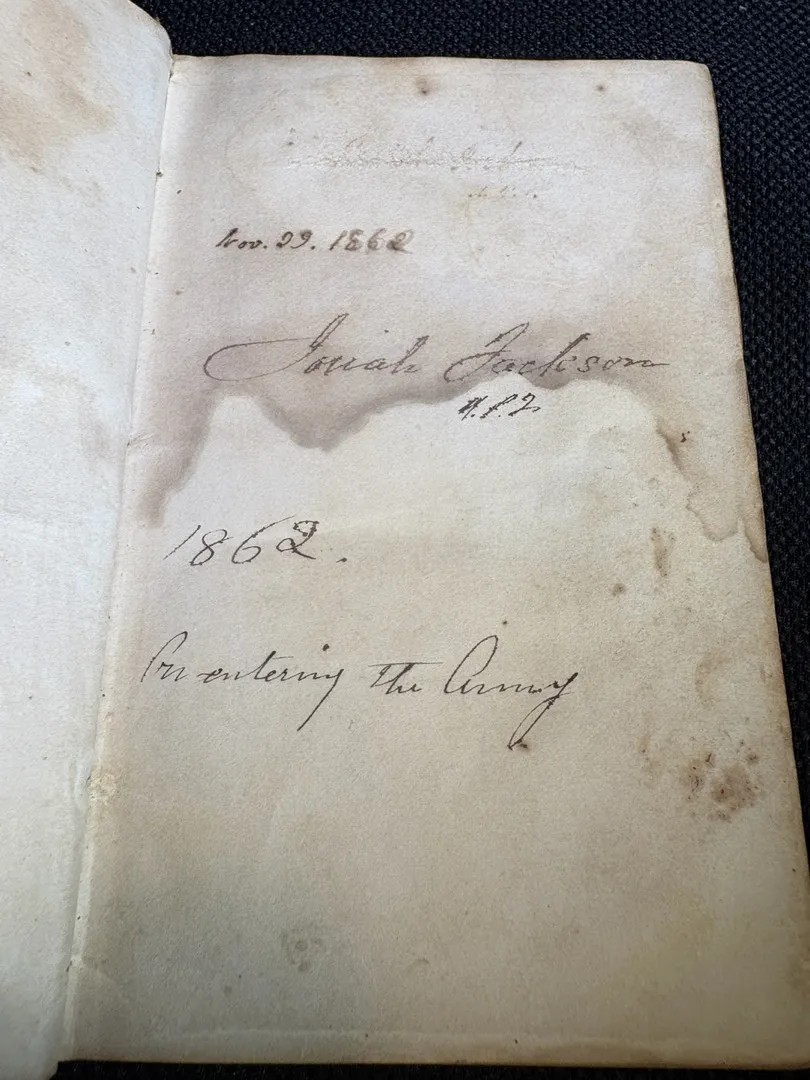 Nov. 29. 1862
Josiah Jackson
1862.
On entering the Army